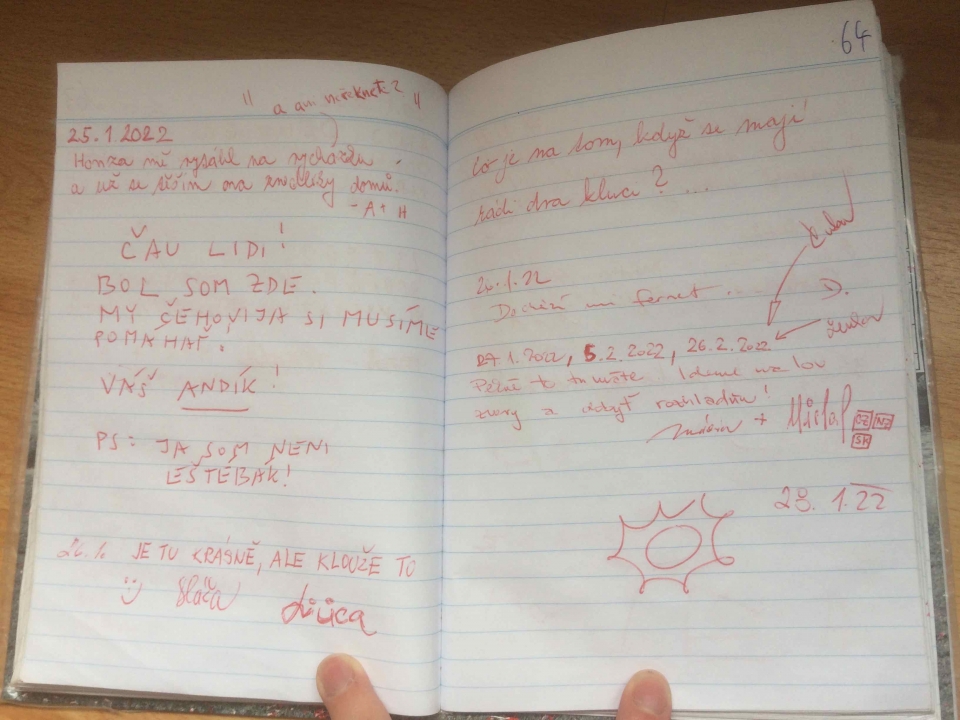 " a ani neřeknete? "
25.1.2022
Honza mě vytáhl na vycházku
a už se těším na domů.
- A + H
ČAU LIDI!
BOL SOM ZDE.
MY ČEHOVIJA SI MUSÍME
POMÁHAŤ.
VÁŠ ANDÍK!
PS: JA SOM NENI
EŠTEBÁK!
26.1. JE TU KRÁSNĚ, ALE KLOUŽE TO
64
Co je na tom, když se mají
rádi dva kluci? ...
26.1.22
Dochází mi fernet ...
D.
1.2022, 5.2.2022, 26.2.2022
Pěkně to tu máte. Ideme na lov
zvery a rozhľadňu!
+
CZ NZ
SK
28.1.22